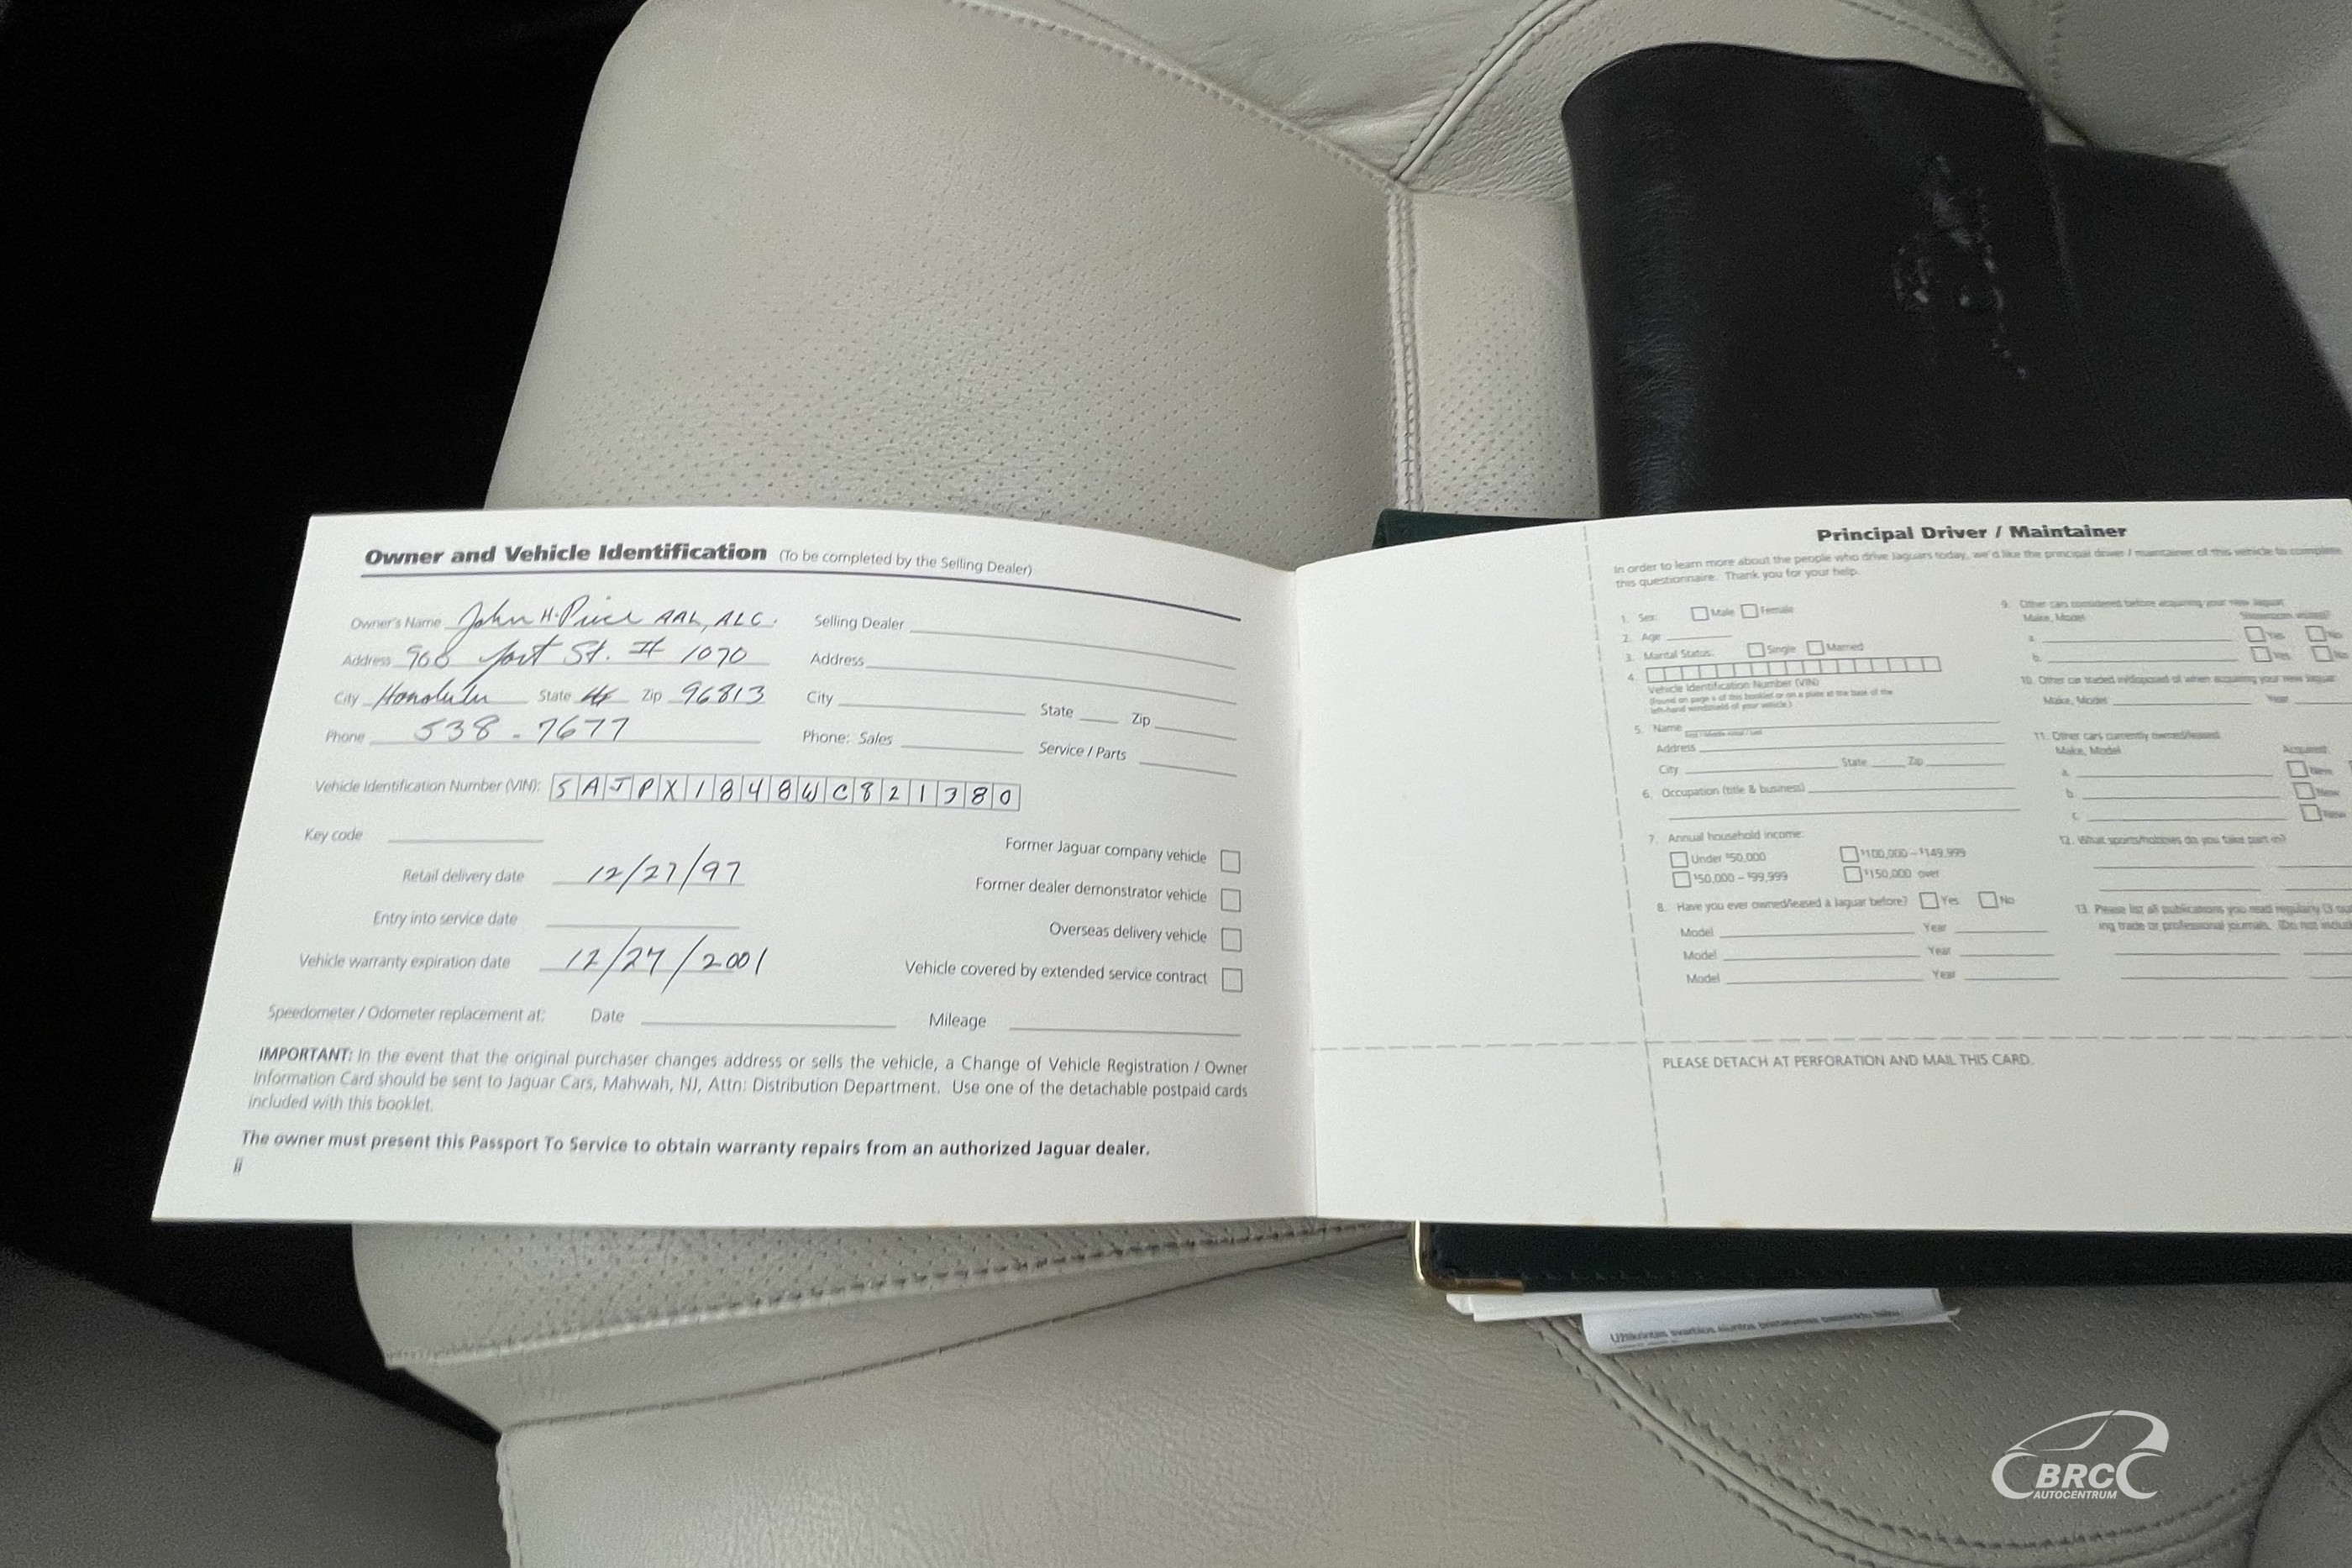 Owner and Vehicle Identification (To be completed by the Selling Dealer)
Owner's Name John H. Price AAL, ALC.
Address 900 Fort St. # 1070
City Honolulu State Zip 96813
Phone 538-7677
Selling Dealer
Address
City State Zip
Phone: Sales Service / Parts
Vehicle Identification Number (VIN): SAJPX1848WC821380
Key code
Retail delivery date 12/27/97
Entry into service date
Vehicle warranty expiration date 12/27/2001
Former Jaguar company vehicle
Former dealer demonstrator vehicle
Overseas delivery vehicle
Vehicle covered by extended service contract
Speedometer / Odometer replacement at: Date Mileage
IMPORTANT: In the event that the original purchaser changes address or sells the vehicle, a Change of Vehicle Registration / Owner
Information Card should be sent to Jaguar Cars, Mahwah, NJ, Attn: Distribution Department. Use one of the detachable postpaid cards
included with this booklet.
The owner must present this Passport To Service to obtain warranty repairs from an authorized Jaguar dealer.
ii
Principal Driver / Maintainer
In order to learn more about the people who drive Jaguars today, we'd like the principal driver / maintainer of this vehicle to complete
this questionnaire. Thank you for your help.
1. Sex: Male Female
2. Age
3. Marital Status: Single Married
4.
Vehicle Identification Number (VIN)
(Found on page ii of this booklet or on a plate at the base of the
left-hand windshield of your vehicle.)
5. Name
Address
City State Zip
6. Occupation (title & business)
7. Annual household income:
Under $50,000 $100,000 – $149,999
$50,000 – $99,999 $150,000 over
8. Have you ever owned/leased a Jaguar before? Yes No
Model Year
Model Year
Model Year
9. Other cars considered before acquiring your new Jaguar:
Make, Model
a. Yes No
b. Yes No
10. Other car traded in/disposed of when acquiring your new Jaguar:
Make, Model Year
11. Other cars currently owned/leased:
Make, Model Acquired:
a. New
b. New
c. New
12. What sports/hobbies do you take part in?
13. Please list all publications you read regularly (3
ing trade or professional journals. (Do not
PLEASE DETACH AT PERFORATION AND MAIL THIS CARD.
BRC
AUTOCENTRUM